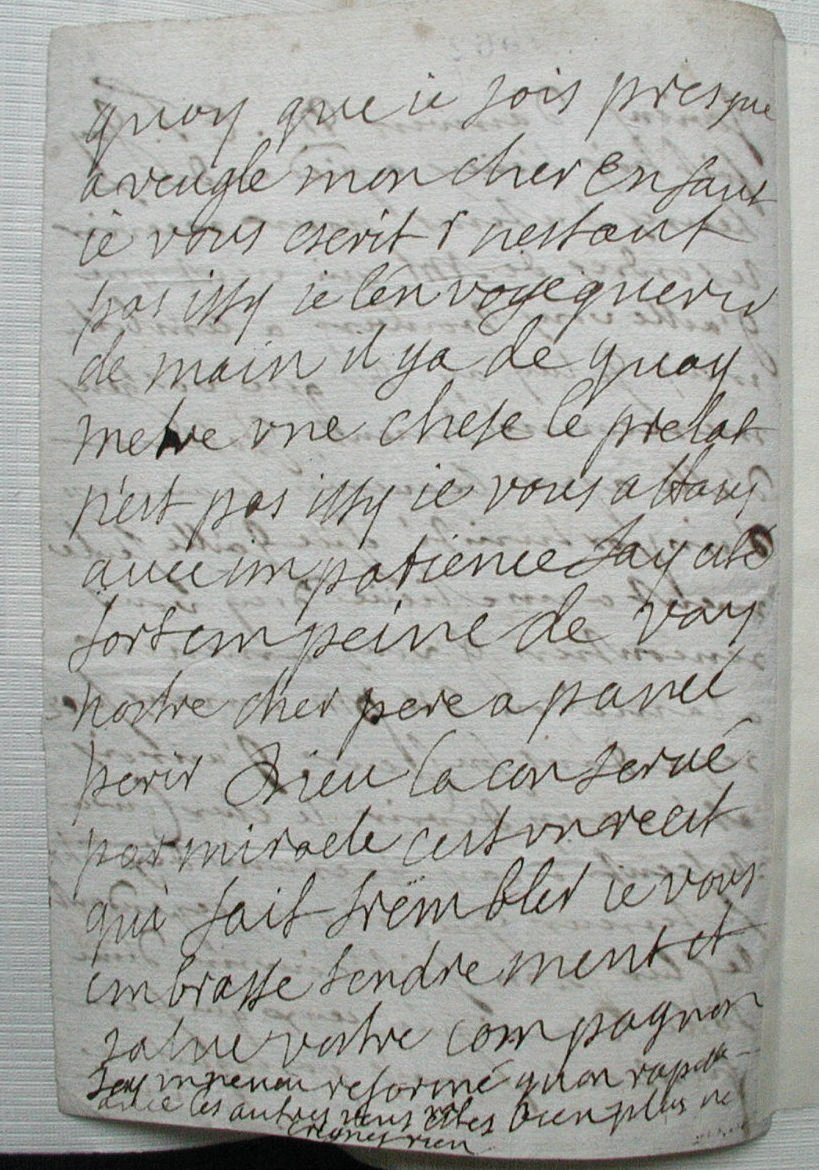 quoy que ie sois presque
aveugle mon cher enfant
ie vous escrit r nestant
pas issy ie lenvoye querir
de main il ya de quoy
metre vne chese le prelat
n'est pas issy ie vous attans
avec impatience Jay esté
fort empeine de vous
nostre cher pere a pancé
perir Dieu la conservé
par miracle cest vn recit
qui fait trëmbler ie vous
embrasse tendrement et
salue vostre compagnon
Jay un neveu reformé quon
avec les autres vous estes bien plus ne
creignes rien